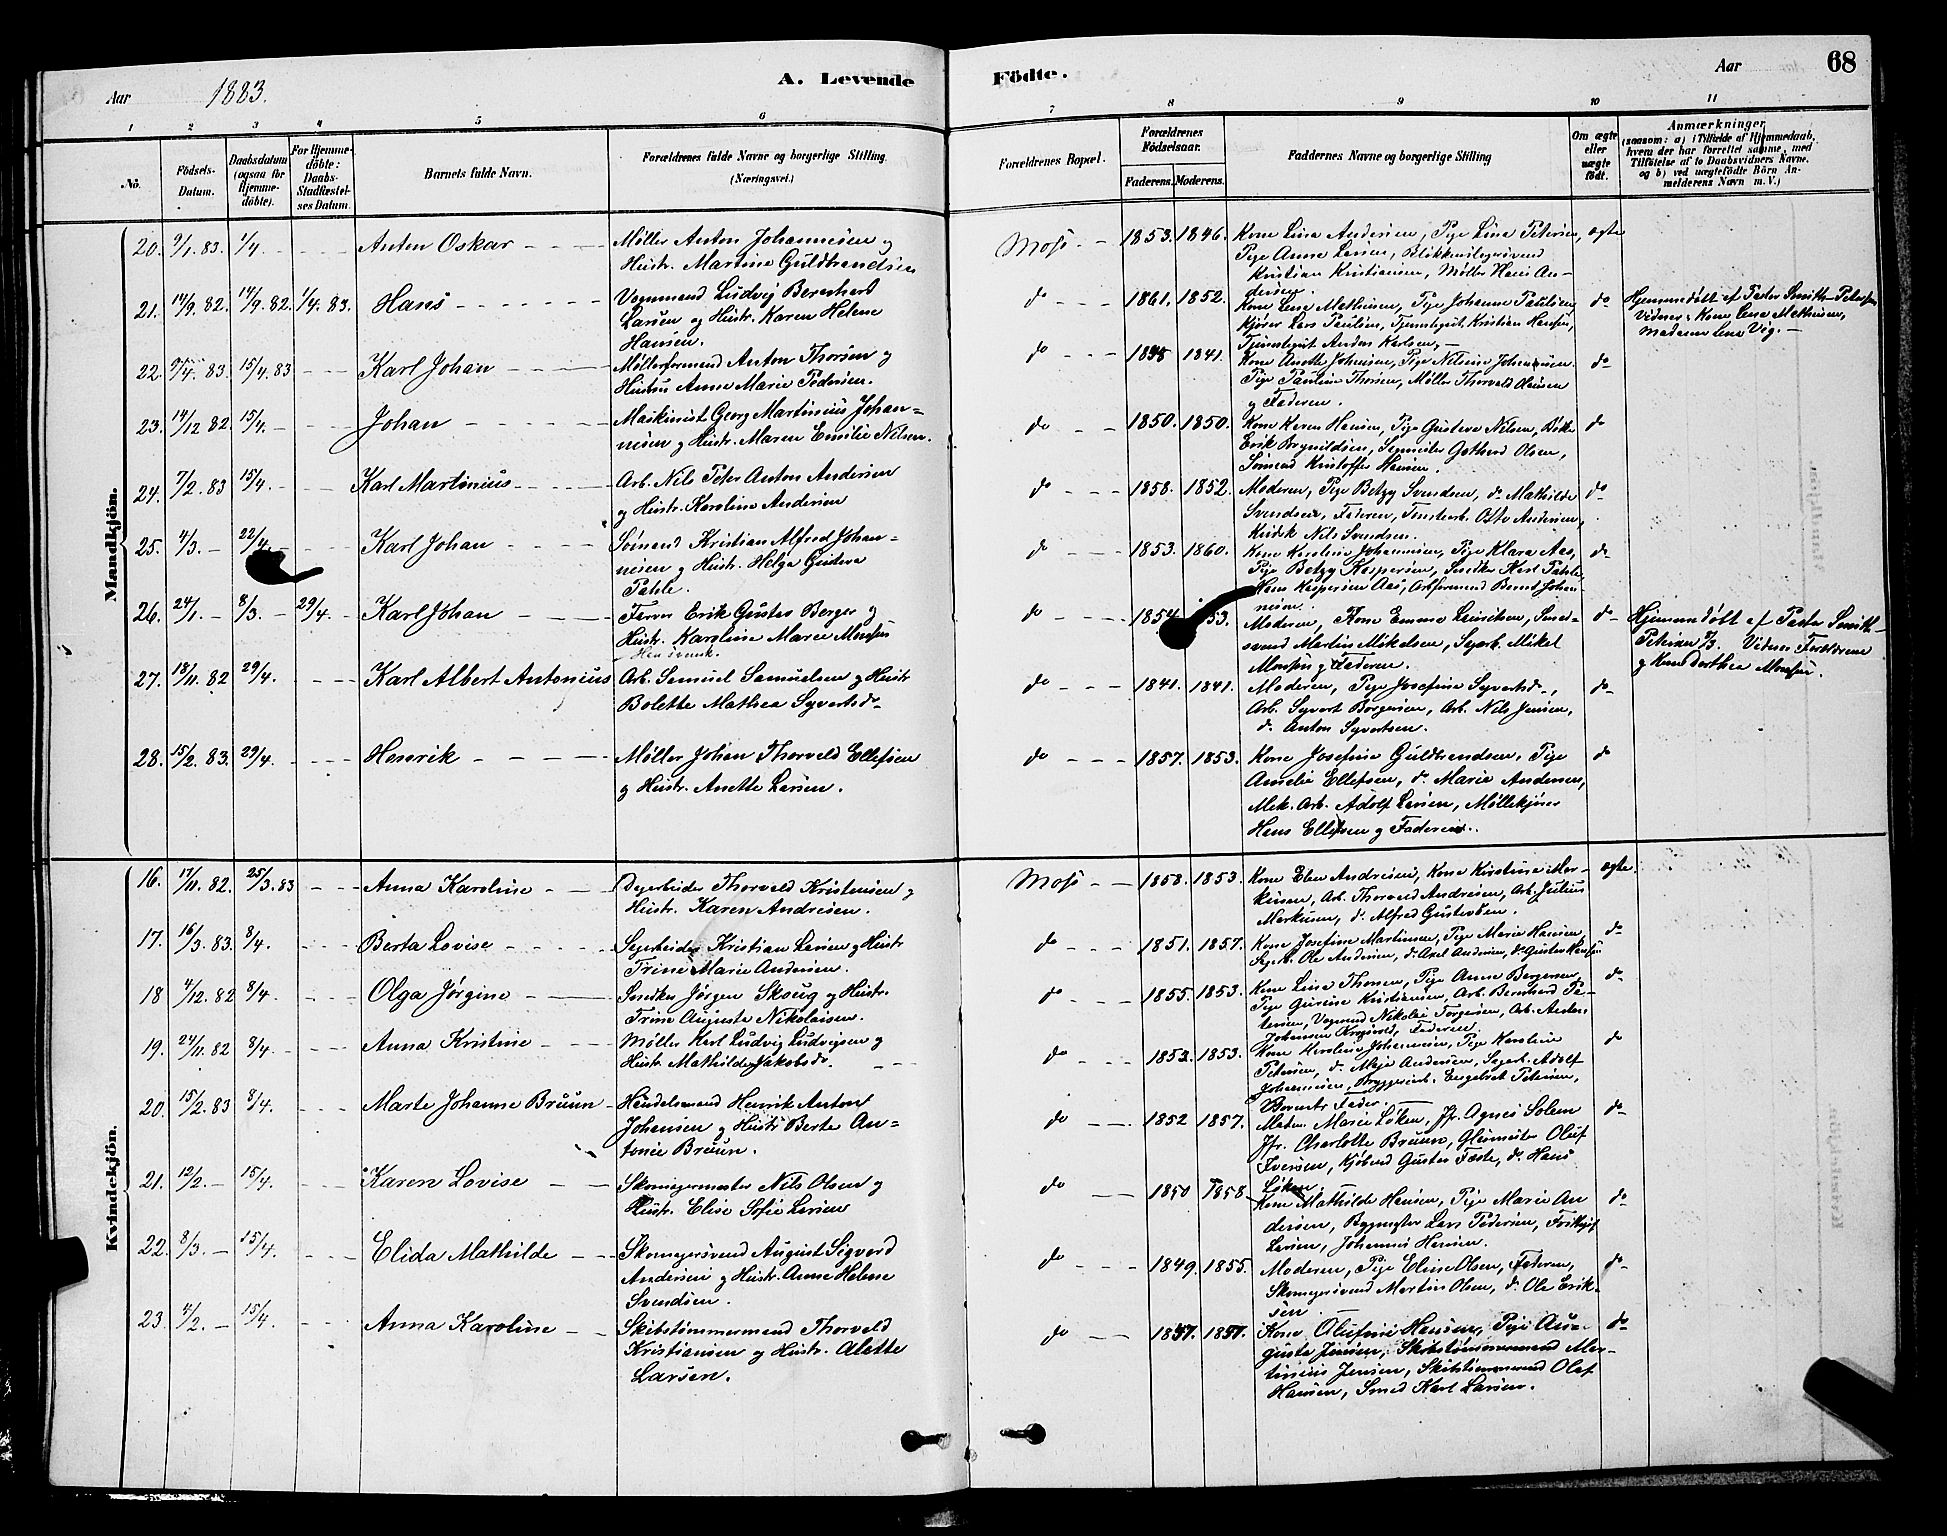 Aar 1883.
A. Levende
Födte.
Aar
68
1 2 3 4 5 6 7 8 9 10 11
No.
Födsels-Datum.
Daabsdatum (ogsaa for Hjemmedöbte).
For Hjemmedöbte: Daabs-Stadfæstelses Datum.
Barnets fulde Navn.
Forældrenes fulde Navne og borgerlige Stilling. (Næringsvei.)
Forældrenes Bopæl.
Forældrenes Födselsaar.
Faderens. Moderens.
Faddernes Navne og borgerlige Stilling
Om ægte eller uægte födt.
Anmærkninger
(saasom: a) i Tilfælde af Hjemmedaab, hvem der har forrettet samme, med Tilföielse af to Daabsvidners Navne. og b) ved uægtefödte Börn Anmelderens Navn m. V.)
Mandkjön.
20. 9/1. 83. 1/4. Anton Oskar Møller Anton Johannesen og
Hustr. Martine Guldbrandsen
Moss 1853. 1846. Kone Lina Andersen, Pige Lina Petersen, ægte
Pige Anna Larsen, Blikkenslagersvend
Kristian Kristiansen, Møller Hans An-
dersen.
21. 14/9. 82. 14/9. 82. 1/4. 83. Hans Vognmand Ludvig Bernhart
Larsen og Hustr. Karen Helene
Hansen.
do 1861. 1852. Kone Lene Mathisen, Pige Johanne Paulsen, do
Kjører Lars Paulsen, Tjenestegut Kristian Hansen,
Tjenestegut Anders Karlsen,
Hjemmedøbt af Pastor Smith-Petersen
Vidner: Kone Lene Mathisen,
Madame Lena Vig.
22. 9/4. 83. 15/4. 83 Karl Johan Møllerformand Anton Thorsen og
Hustru Anne Marie Pedersen.
do 1841. Kone Anette Johnsen, Pige Nilsine Johannesen. do
Pige Pauline Thorsen, Møller Thorvald Hansen
og Faderen.
23. 14/12 82. 15/4. Johan Maskinist Georg Martinius Johan-
nesen og Hustr. Maren Emilie Nilsen.
do 1850. 1850. Kone Karen Hansen, Pige Gustava Nilsen, do
Erik Brynildsen, Gothard Olsen,
Sømand Kristoffer Hansen.
24. 7/2. 83 15/4. Karl Martinius Arb. Nils Peter Anton Andersen
og Hustr. Karoline Andersen
do 1858. 1852. Moderen, Pige Betzy Svendsen, do Mathilde do
Svendsen, Faderen, Otto Andersen,
Nils Svendsen.
25. 4/3. 22/4. Karl Johan Sømand Kristian Alfred Johan-
nesen og Hustr. Helga Gustava
Pahle.
do 1853. 1860. Kone Karoline Johannesen, Pige Klara Aas, do
Pige Betzy Kaspersen, Snedker Karl Pahle,
Hans Kaspersen Aas, Arbformand Bernt Johan-
nesen.
26. 24/1. 8/3. 29/4. Karl Johan Farver Erik Gustav Berger og
Hustr. Karoline Marie Monsen
do 1854. 1853. Moderen, Kone Emma Lauritsen, Smed-
svend Martin Mikelsen, Sagarb. Mikel
Monsen og Faderen. do
Hjemmedøbt af Pastor Smith-
Petersen 8/3. Vidner Forældrene
og Kone Dorthea Monsen.
27. 18/11. 82 29/4. Karl Albert Antonius Arb. Samuel Samuelsen og Hustr
Bolette Mathea Syvertsd.
do 1841. 1841. Moderen, Pige Josefine Syvertsd., do
Arb. Syvert Borgersen, Arb. Nils Jensen,
do Anton Syvertsen.
28. 15/2. 83. 29/4. Henrik Møller Johan Thorvald Ellefsen
og Hustr. Anette Larsen.
do 1857. 1853. Kone Josefine Guldbrandsen, Pige do
Amelie Ellefsen, do Marie Andersen,
Mek. Arb. Adolf Larsen, Møllekjører
Hans Ellefsen og Faderen.
Kvindekjön.
16. 17/11. 82. 25/3. 83 Anna Karoline Thorvald Kristensen og
Hustr. Karen Andresen.
Moss 1858. 1853. Kone Elen Andresen, Kone Kirstine Mar- ægte
kusen, Arb. Thorvald Andresen, Arb. Julius
Markusen, do Alfred Gustavsen.
17. 16/3. 83. 8/4. Berta Lovise Sagarbeider Kristian Larsen og Hustr
Trine Marie Andersen.
do 1851. 1857. Kone Josefine Martinsen, Pige Marie Hansen, do
Sagarb. Ole Andersen, do Axel Andersen, do Gustav Hansen
18 4/12. 82 8/4. Olga Jørgine Snedker Jørgen Skoug og Hustr.
Trine Augusta Nikolaisen.
do 1855. 1853. Kone Lina Thomsen, Pige Anna Bergersen, do
Pige Gurine Kristiansen, Arb. Bernhard Pe-
tersen, Vognmand Nikolai Torgersen, Arb. Anders
Johansen, Faderen.
19. 24/11. 82 8/4. Anna Kristine Møller Karl Ludvig Ludvigsen og
Hustr Mathilde Jakobsd.
do 1853. 1853. Kone Karoline Johannesen, Pige Karoline do
Petersen, do Maja Andersen, Sagarb. Adolf
Johannesen, Bryggeriarb. Engebret Petersen,
Barnets Fader.
20. 15/2. 83 8/4. Marte Johanne Bruun Handelsmand Henrik Anton
Johansen og Hustr Berte An-
tonie Bruun.
do 1852 1857. Madm. Marie Løken, Jfr. Agnes Solem do
Jfr. Charlotte Bruun, Oluf
Iversen, Kjøbmd Gustav Fæste, do Hans
Løken.
21. 12/2. 15/4. Karen Lovise Skomagermester Nils Olsen og
Hustr. Elise Sofie Larsen
do 1850 1858 Kone Mathilde Hansen, Pige Marie An do
dersen, Byggmester Lars Pedersen,
Larsen, Johannes Hansen.
22. 8/3. 15/4. Elida Mathilde Skomagersvend August Sigvard
Andersen og Hustr. Anne Helene
Svendsen.
do 1849. 1855. Moderen, Pige Elise Olsen, Faderen, do
Skomagersvend Martin Olsen, do Ole Erik-
sen.
23. 4/2. 15/4. Anna Karoline Skibstømmermand Thorvald
Kristiansen og Hustr. Alette
Larsen.
do 1857. 1857. Kone Olufine Hansen, Pige Au- do
gusta Jensen, Skibstømmermand Mar-
tinius Jensen, Skibstømmermand Oluf
Hansen, Smed Karl Larsen.